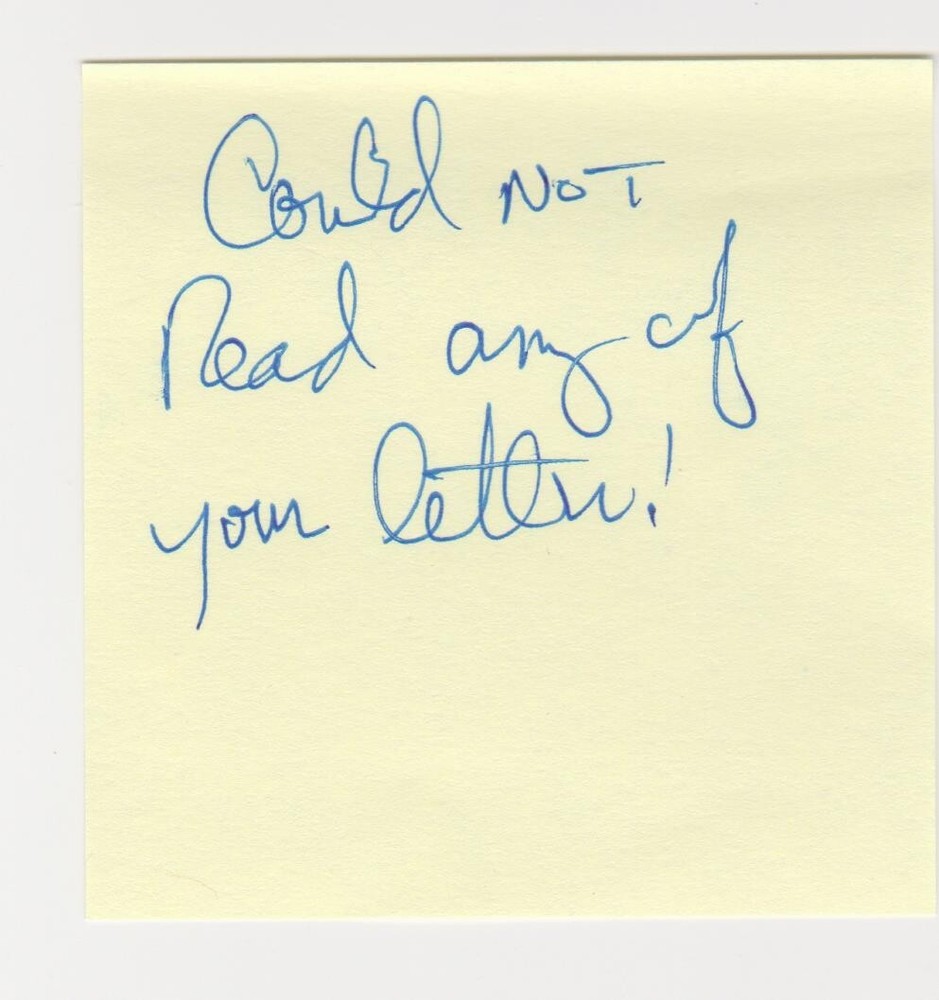 Could NOT
Read any of
your letter!